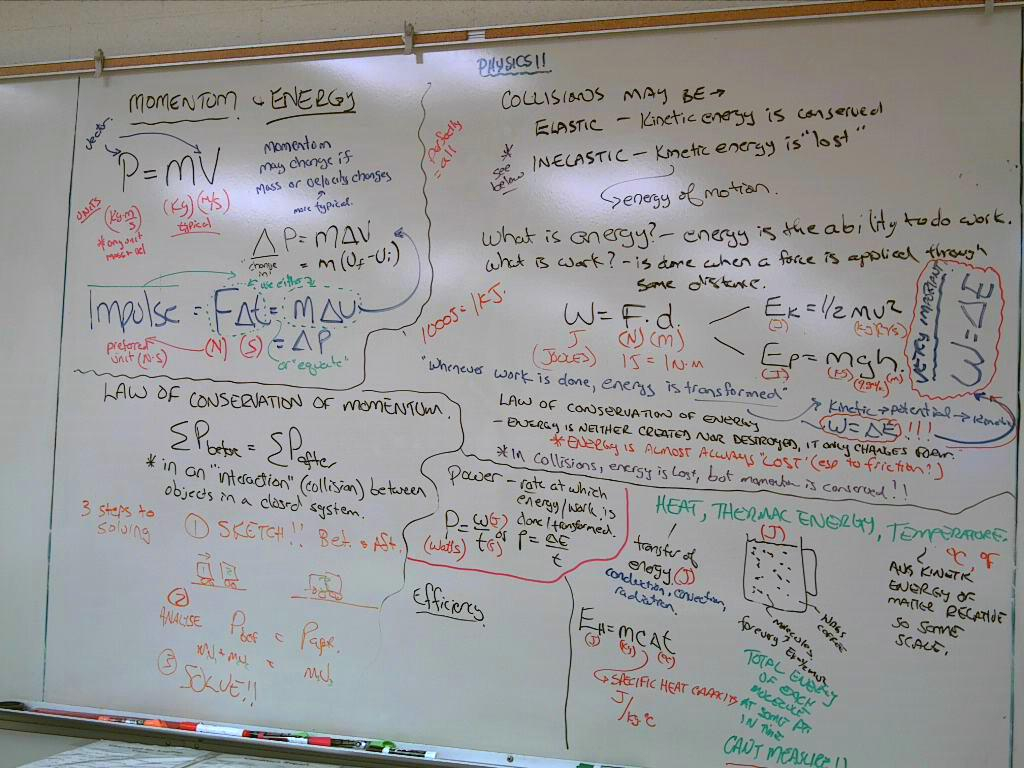 PHYSICS 11
MOMENTUM & ENERGY
vector
P = mV
UNITS
(kg·m/s)
(kg)(m/s)
typical
* any unit
mass + vel
momentum
may change if
mass or velocity changes
more typical.
ΔP = mΔV
change in
= m(Vf - Vi)
use either
Impulse = FΔt = mΔv
preferred
unit (N·S)
(N) (S)
= ΔP
or "equate"
LAW OF CONSERVATION OF MOMENTUM.
ΣPbefore = ΣPafter
* in an "interaction" (collision) between
objects in a closed system.
3 steps to
solving
① SKETCH!! Bef. & Aft.
②
ANALYSE
Pbef = Paft.
③
SOLVE!!
COLLISIONS MAY BE →
perfectly
= all
ELASTIC - Kinetic energy is conserved
* see
below
INELASTIC - Kinetic energy is "lost"
energy of motion.
What is energy? - energy is the ability to do work.
What is work? - is done when a force is applied through
some distance.
1000J = 1KJ
W = F.d.
J (N) (m)
(JOULES) 1J = 1N·m
EK = 1/2 mv²
(J) (kg)(m/s)
EP = mgh.
(J) (kg) (9.8m/s²) (m)
VERY IMPORTANT
W = ΔE
"Whenever work is done, energy is transformed"
Kinetic → potential →
W = ΔE !!!
LAW OF CONSERVATION OF ENERGY
- ENERGY IS NEITHER CREATED NOR DESTROYED, IT ONLY CHANGES FORM.
* ENERGY IS ALMOST ALWAYS "LOST" (esp to friction!)
* In Collisions, energy is lost, but momentum is conserved!!
Power - rate at which
energy/work is
done/transformed.
P = W(J)/t(s) or P = ΔE/t
(watts)
Efficiency
HEAT, THERMAL ENERGY, TEMPERATURE.
(J)
°C, °F
transfer of
energy (J)
conduction, convection,
radiation.
EH = mcΔt
(J) (kg) (°C)
SPECIFIC HEAT CAPACITY
J/kg·°C
TOTAL ENERGY
OF EACH
MOLECULE
AT SOME PT
IN TIME
CAN'T MEASURE!!
AVG KINETIC
ENERGY OF
MATTER RELATIVE
TO SOME
SCALE.